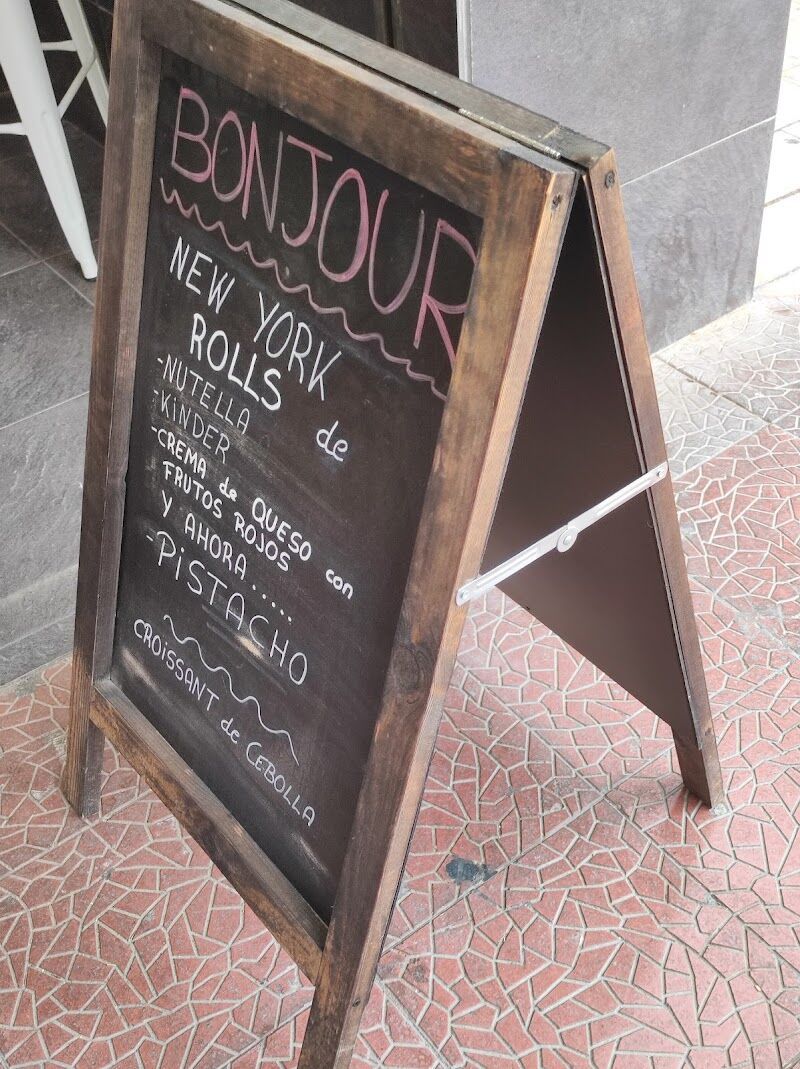 BONJOUR
NEW YORK
ROLLS de
-NUTELLA
-KiNDER
-CREMA de QUESO con
FRUTOS ROJOS
Y AHORA.....
-PiSTACHO
CROiSSANT de CEBOLLA